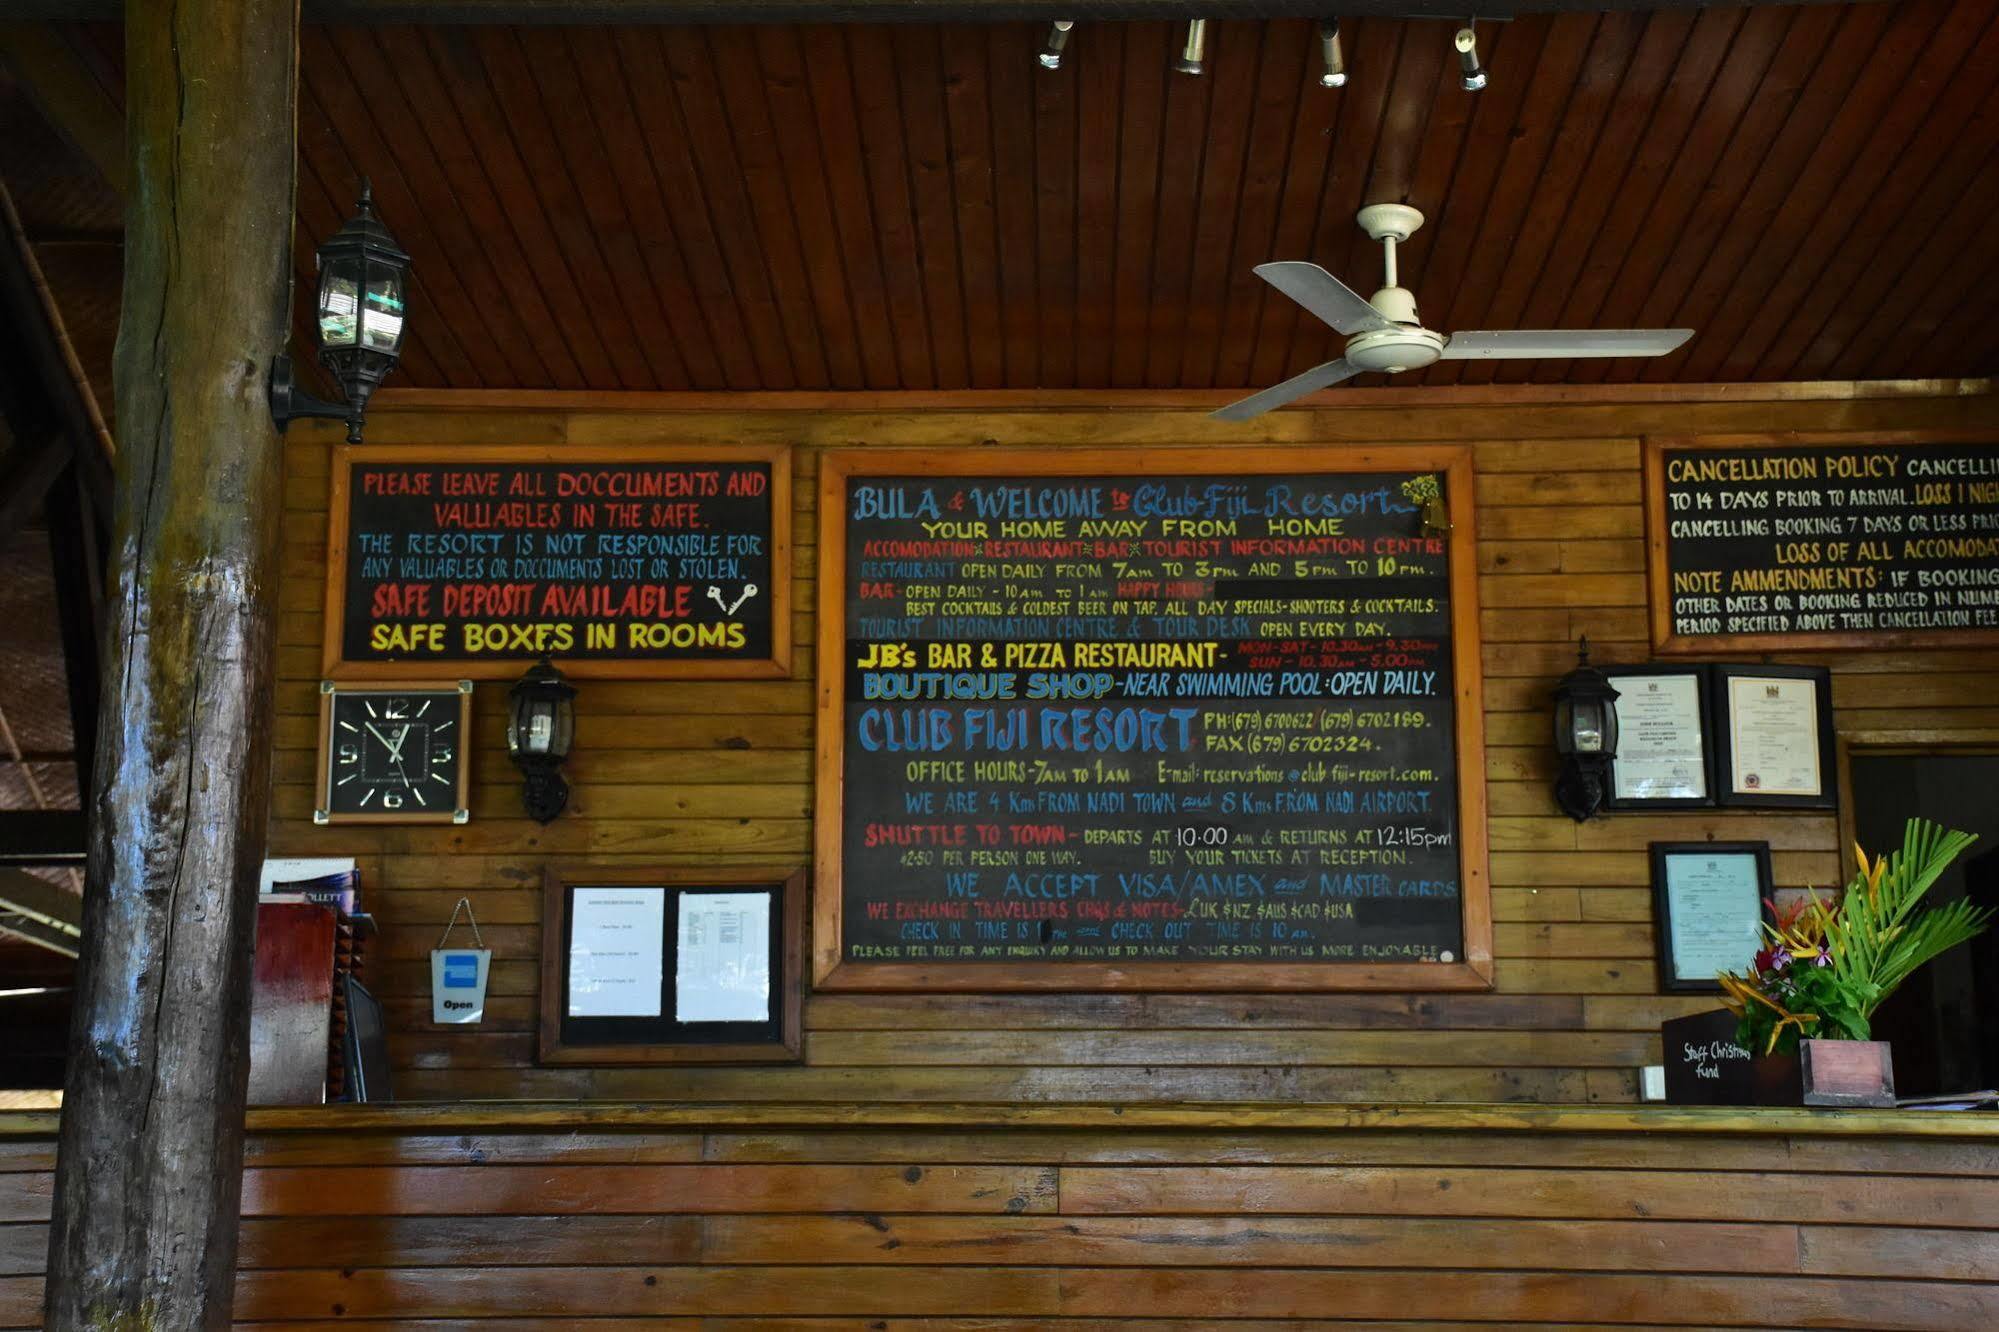 PLEASE LEAVE ALL DOCCUMENTS AND
VALUABLES IN THE SAFE.
THE RESORT IS NOT RESPONSIBLE FOR
ANY VALUABLES OR DOCCUMENTS LOST OR STOLEN.
SAFE DEPOSIT AVAILABLE
SAFE BOXES IN ROOMS
12
3
6
9
Open
BULA & WELCOME to Club Fiji Resort
YOUR HOME AWAY FROM HOME
ACCOMODATION RESTAURANT BAR TOURIST INFORMATION CENTRE
RESTAURANT OPEN DAILY FROM 7am TO 3pm AND 5pm TO 10pm.
BAR - OPEN DAILY - 10am TO 1am HAPPY HOURS -
BEST COCKTAILS & COLDEST BEER ON TAP. ALL DAY SPECIALS - SHOOTERS & COCKTAILS.
TOURIST INFORMATION CENTRE & TOUR DESK OPEN EVERY DAY.
JB's BAR & PIZZA RESTAURANT - MON - SAT - 10.30am - 9.30pm
SUN - 10.30am - 5.00pm
BOUTIQUE SHOP - NEAR SWIMMING POOL : OPEN DAILY.
CLUB FIJI RESORT PH:(679) 6700622/(679) 6702189.
FAX (679) 6702324.
OFFICE HOURS - 7AM TO 1AM E-mail: reservations @ club fiji-resort.com.
WE ARE 4 Kms FROM NADI TOWN and 8 Kms FROM NADI AIRPORT.
SHUTTLE TO TOWN - DEPARTS AT 10:00 AM & RETURNS AT 12:15pm
$2.50 PER PERSON ONE WAY. BUY YOUR TICKETS AT RECEPTION.
WE ACCEPT VISA/AMEX and MASTER CARDS
WE EXCHANGE TRAVELLERS CHQS & NOTES - £UK $NZ $AUS $CAD $USA
CHECK IN TIME IS 1 PM and CHECK OUT TIME IS 10 am.
PLEASE FEEL FREE FOR ANY ENQUIRY AND ALLOW US TO MAKE YOUR STAY WITH US MORE ENJOYABLE
CANCELLATION POLICY CANCELLI
TO 14 DAYS PRIOR TO ARRIVAL. LOSS 1 NIG
CANCELLING BOOKING 7 DAYS OR LESS PRI
LOSS OF ALL ACCOMODAT
NOTE AMMENDMENTS: IF BOOKING
OTHER DATES OR BOOKING REDUCED IN NUMB
PERIOD SPECIFIED ABOVE THEN CANCELLATION FEE
Staff Christmas
fund